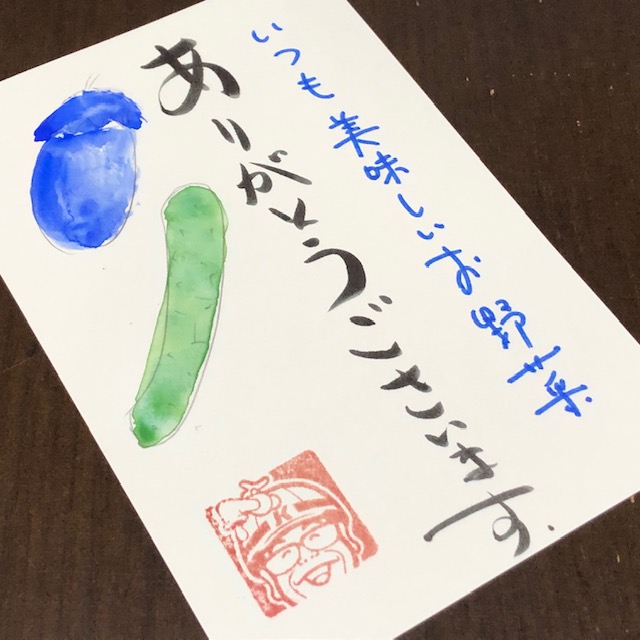 いつも美味しいお野菜
ありがとうございます。
K